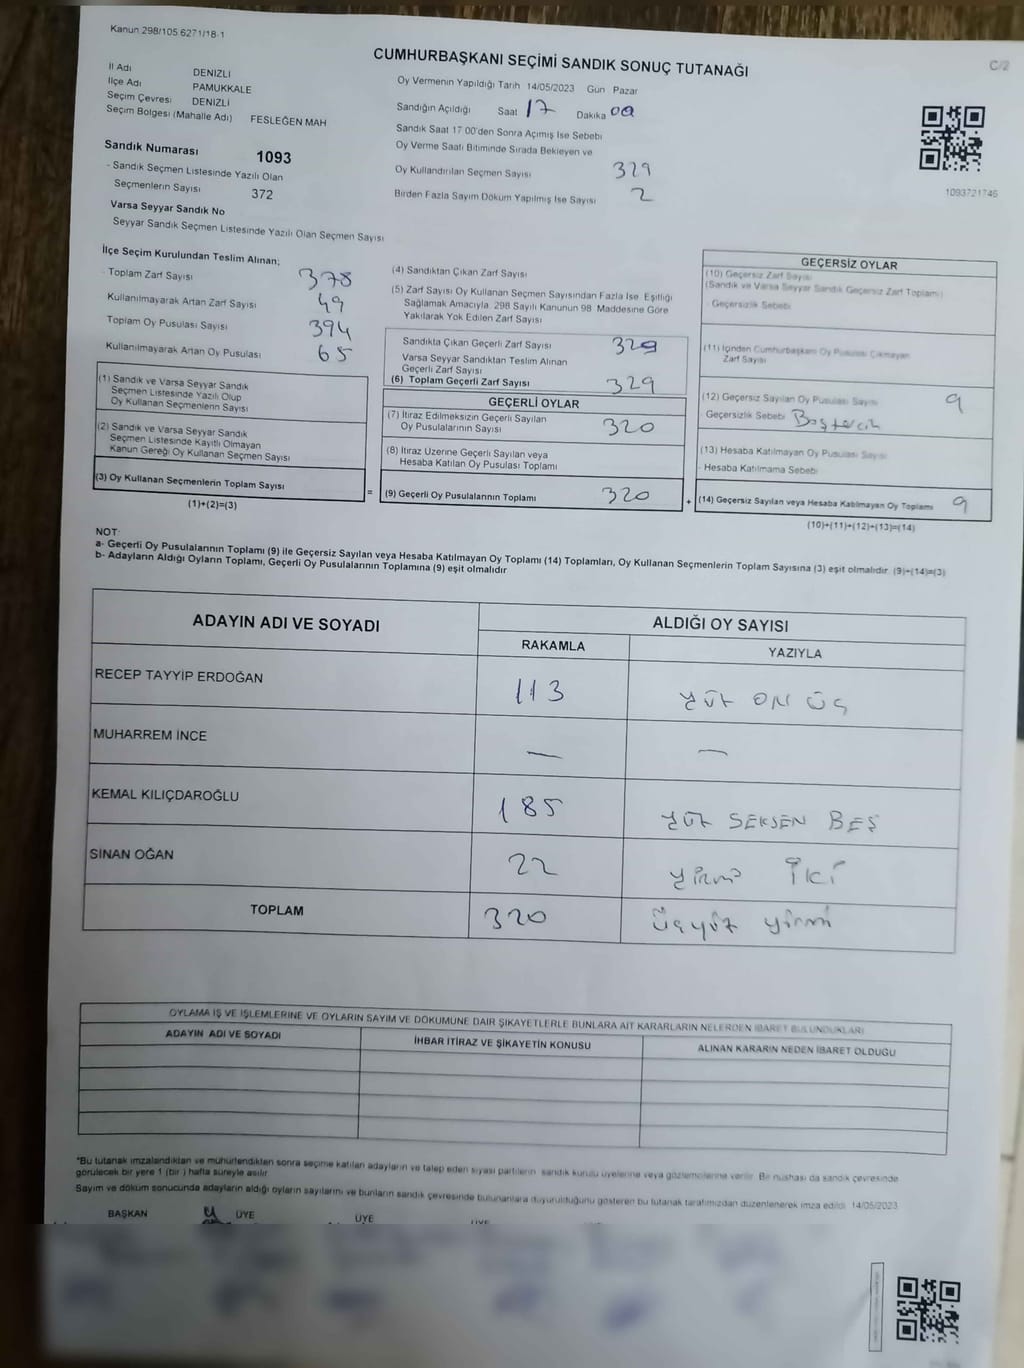 Kanun 298/105 6271/18-1
CUMHURBAŞKANI SEÇİMİ SANDIK SONUÇ TUTANAĞI
C/2
İl Adı DENİZLİ
İlçe Adı PAMUKKALE
Seçim Çevresi DENİZLİ
Seçim Bölgesi (Mahalle Adı) FESLEĞEN MAH
Sandık Numarası 1093
- Sandık Seçmen Listesinde Yazılı Olan
Seçmenlerin Sayısı 372
Varsa Seyyar Sandık No
Seyyar Sandık Seçmen Listesinde Yazılı Olan Seçmen Sayısı
Oy Vermenin Yapıldığı Tarih 14/05/2023 Gün Pazar
Sandığın Açıldığı Saat 17 Dakika 00
Sandık Saat 17 00'den Sonra Açımış İse Sebebi
Oy Verme Saati Bitiminde Sırada Bekleyen ve
Oy Kullandırılan Seçmen Sayısı 329
Birden Fazla Sayım Döküm Yapılmış İse Sayısı 2
1093721746
İlçe Seçim Kurulundan Teslim Alınan;
- Toplam Zarf Sayısı 378
Kullanılmayarak Artan Zarf Sayısı 49
Toplam Oy Pusulası Sayısı 394
Kullanılmayarak Artan Oy Pusulası 65
(1) Sandık ve Varsa Seyyar Sandık
Seçmen Listesinde Yazılı Olup
Oy Kullanan Seçmenlerin Sayısı
(2) Sandık ve Varsa Seyyar Sandık
Seçmen Listesinde Kayıtlı Olmayan
Kanun Gereği Oy Kullanan Seçmen Sayısı
(3) Oy Kullanan Seçmenlerin Toplam Sayısı
(1)+(2)=(3)
(4) Sandıktan Çıkan Zarf Sayısı
(5) Zarf Sayısı Oy Kullanan Seçmen Sayısından Fazla İse Eşitliği
Sağlamak Amacıyla 298 Sayılı Kanunun 98 Maddesine Göre
Yakılarak Yok Edilen Zarf Sayısı
Sandıkta Çıkan Geçerli Zarf Sayısı 329
Varsa Seyyar Sandıktan Teslim Alınan
Geçerli Zarf Sayısı
(6) Toplam Geçerli Zarf Sayısı 329
GEÇERLİ OYLAR
(7) İtiraz Edilmeksizin Geçerli Sayılan
Oy Pusulalarının Sayısı 320
(8) İtiraz Üzerine Geçerli Sayılan veya
Hesaba Katılan Oy Pusulası Toplamı
= (9) Geçerli Oy Pusulalarının Toplamı 320
GEÇERSİZ OYLAR
(10) Geçersiz Zarf Sayısı
(Sandık ve Varsa Seyyar Sandık Geçersiz Zarf Toplamı)
- Geçersizlik Sebebi
(11) İçinden Cumhurbaşkanı Oy Pusulası Çıkmayan
Zarf Sayısı
(12) Geçersiz Sayılan Oy Pusulası Sayısı 9
- Geçersizlik Sebebi Boş tercih
(13) Hesaba Katılmayan Oy Pusulası Sayısı
- Hesaba Katılmama Sebebi
+ (14) Geçersiz Sayılan veya Hesaba Katılmayan Oy Toplamı 9
(10)+(11)+(12)+(13)=(14)
NOT:
a- Geçerli Oy Pusulalarının Toplamı (9) ile Geçersiz Sayılan veya Hesaba Katılmayan Oy Toplamı (14) Toplamları, Oy Kullanan Seçmenlerin Toplam Sayısına (3) eşit olmalıdır. (9)+(14)=(3)
b- Adayların Aldığı Oyların Toplamı, Geçerli Oy Pusulalarının Toplamına (9) eşit olmalıdır
ADAYIN ADI VE SOYADI ALDIĞI OY SAYISI
RAKAMLA YAZIYLA
RECEP TAYYİP ERDOĞAN 113 YÜZ ON ÜÇ
MUHARREM İNCE — —
KEMAL KILIÇDAROĞLU 185 YÜZ SEKSEN BEŞ
SİNAN OĞAN 22 Yirmi İki
TOPLAM 320 üçyüz yirmi
OYLAMA İŞ VE İŞLEMLERİNE VE OYLARIN SAYIM VE DÖKÜMÜNE DAİR ŞİKAYETLERLE BUNLARA AİT KARARLARIN NELERDEN İBARET BULUNDUKLARI
ADAYIN ADI VE SOYADI İHBAR İTİRAZ VE ŞİKAYETİN KONUSU ALINAN KARARIN NEDEN İBARET OLDUĞU
*Bu tutanak imzalandıktan ve mühürlendikten sonra seçime katılan adayların ve talep eden siyasi partilerin sandık kurulu üyelerine veya gözlemcilerine verilir. Bir nüshası da sandık çevresinde
görülecek bir yere 1 (bir) hafta süreyle asılır
Sayım ve döküm sonucunda adayların aldığı oyların sayılarını ve bunların sandık çevresinde bulunanlara duyurulduğunu gösteren bu tutanak tarafımızdan düzenlenerek imza edildi 14/05/2023
BAŞKAN ÜYE ÜYE ÜYE